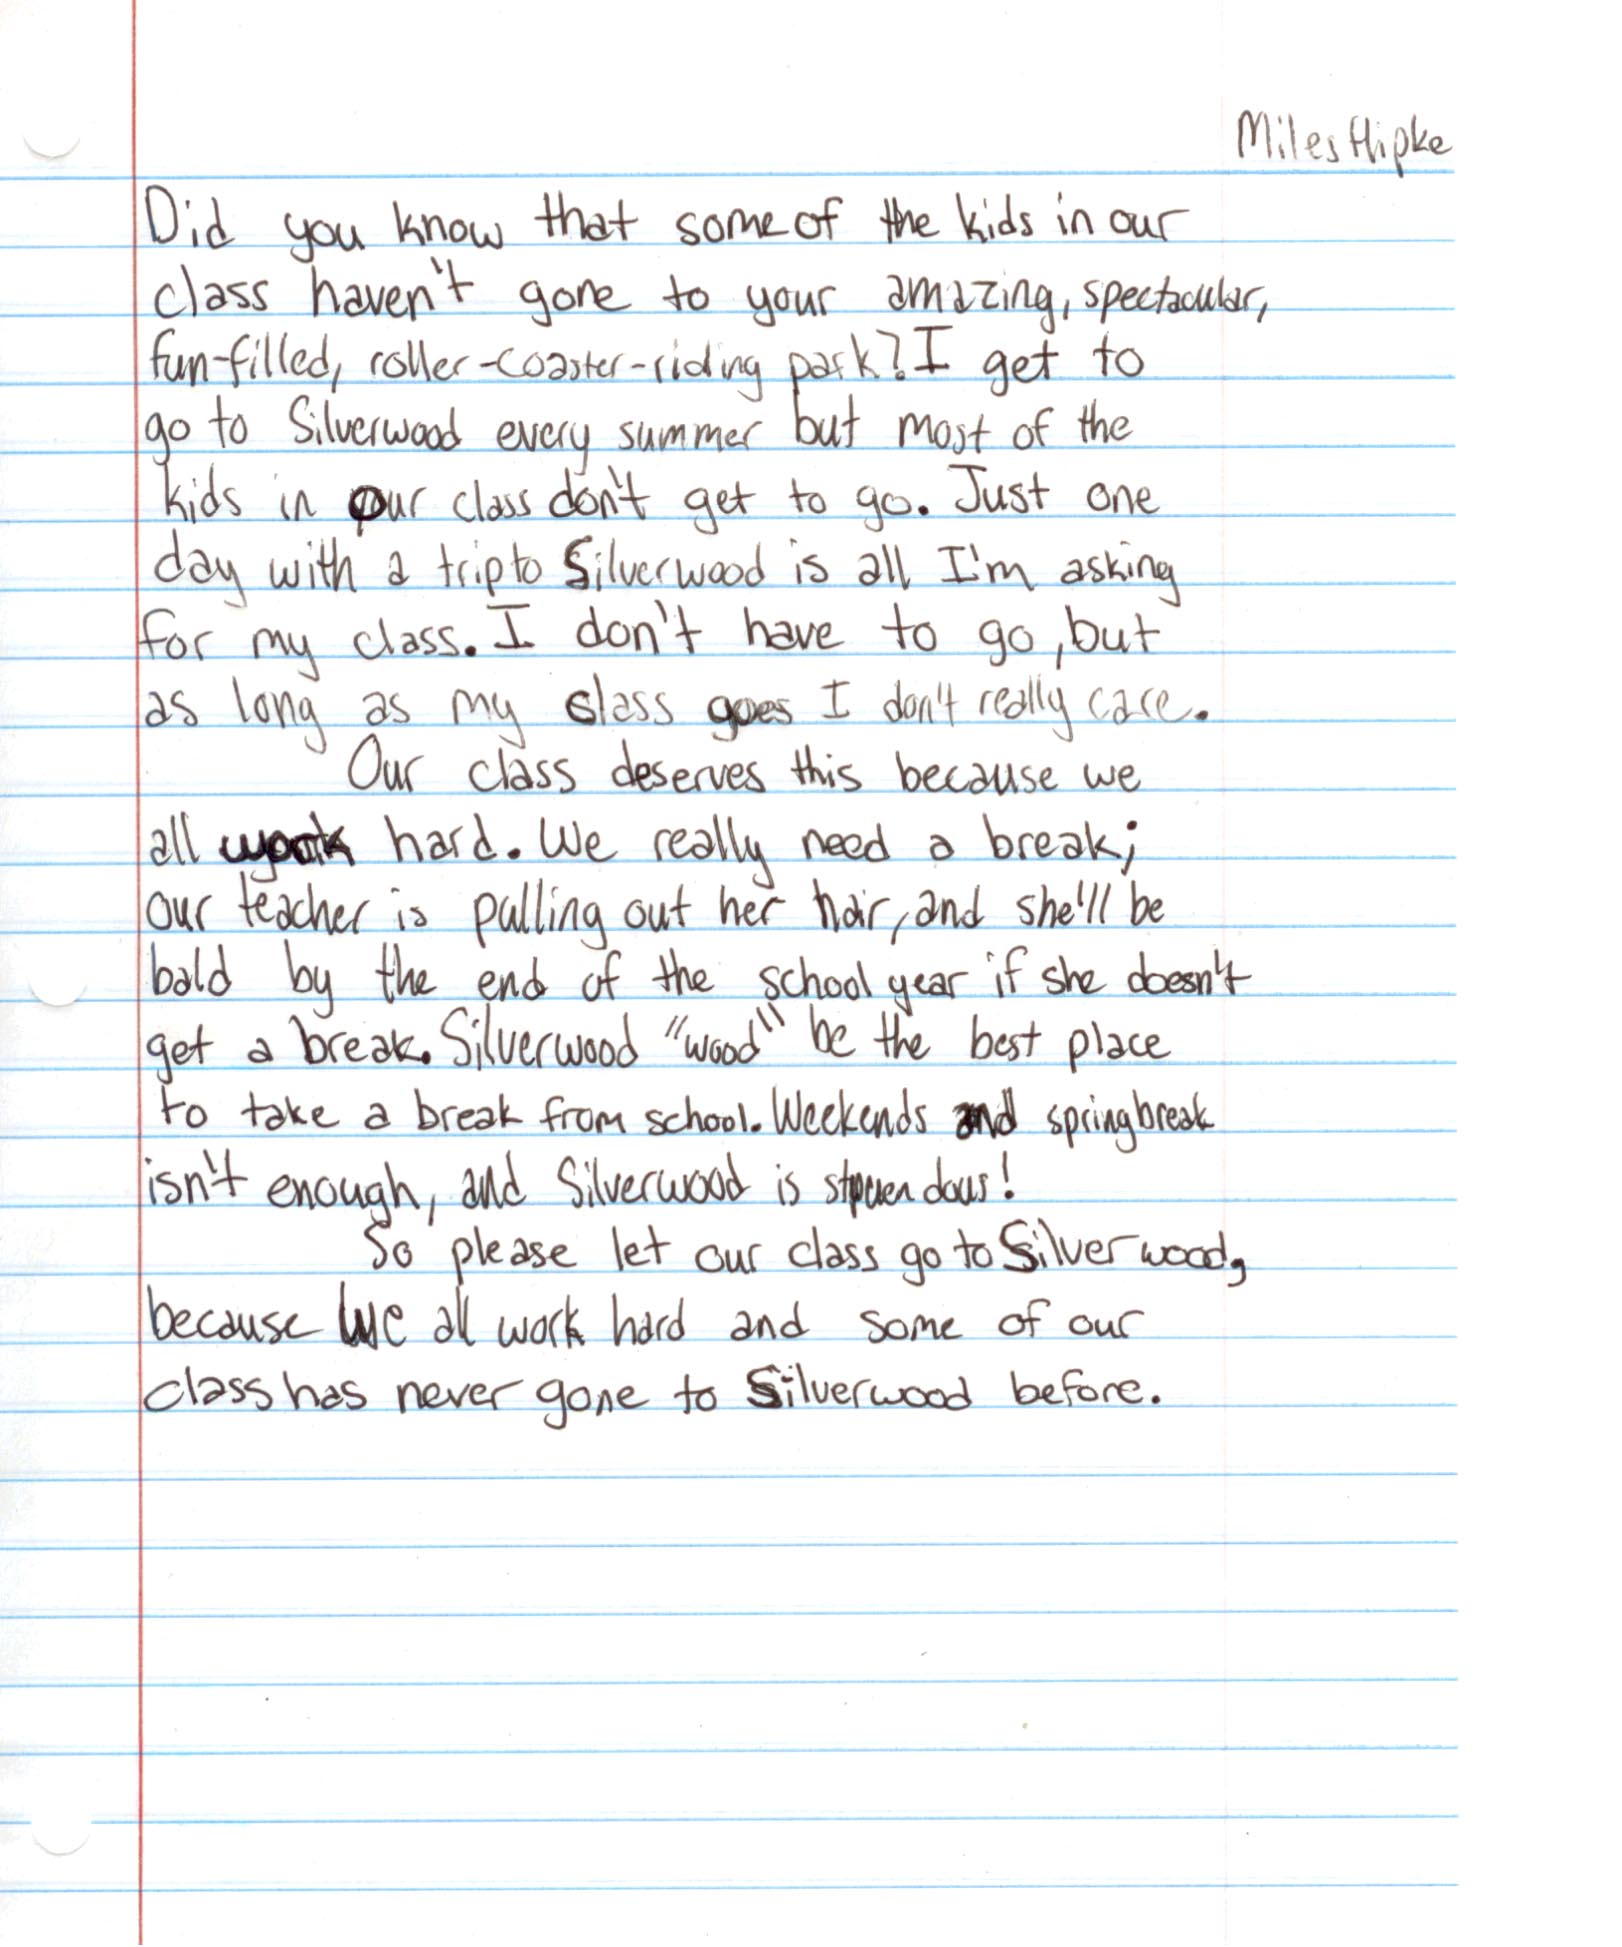 Miles Hipke
Did you know that some of the kids in our
class haven't gone to your amazing, spectacular,
fun-filled, roller-coaster-riding park? I get to
go to Silverwood every summer but most of the
kids in our class don't get to go. Just one
day with a trip to Silverwood is all I'm asking
for my class. I don't have to go, but
as long as my class goes I don't really care.
Our class deserves this because we
all work hard. We really need a break;
our teacher is pulling out her hair, and she'll be
bald by the end of the school year if she doesn't
get a break. Silverwood "wood" be the best place
to take a break from school. Weekends and spring break
isn't enough, and Silverwood is stpuendous!
So please let our class go to Silverwood,
because we all work hard and some of our
class has never gone to Silverwood before.